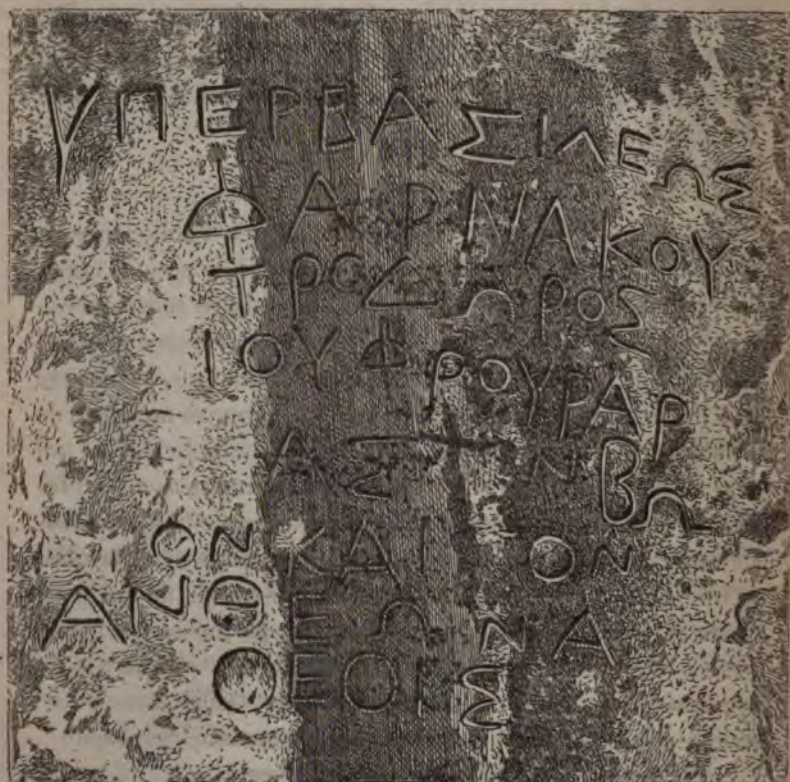 ΥΠΕΡΒΑΣΙΛΕΩΣ
ΦΑΡΝΑΚΟΥ
ΤΡΟΔΩΡΟΣ
ΙΟΥΦΡΟΥΡΑΡ
ΑΣΤΩΝΒΩ
ΟΝΚΑΙΟΝ
ΑΝΘΕΩΝΑ
ΘΕΟΙΣ